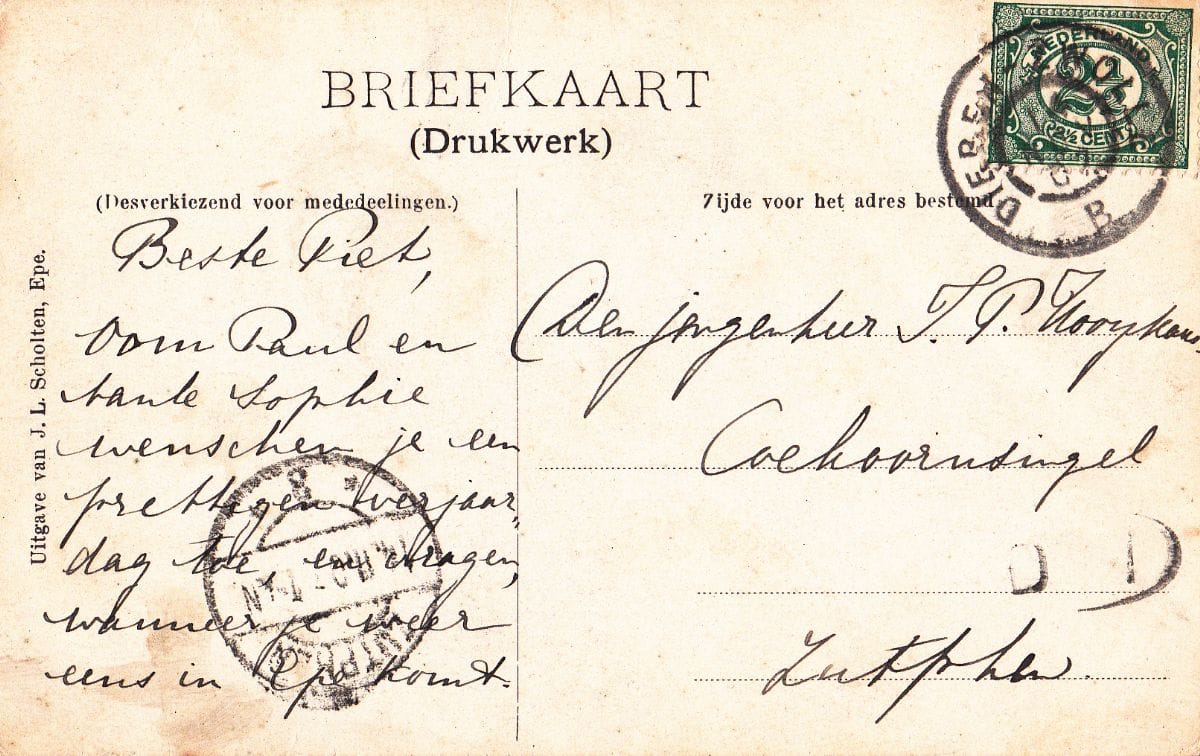 BRIEFKAART
(Drukwerk)
(Desverkiezend voor mededeelingen.)
Zijde voor het adres bestemd
NEDERLAND
2½
2½ CENT
DIEREN
B
Uitgave van J. L. Scholten, Epe.
Beste Piet,
Oom Paul en
tante Sophie
wenschen je een
prettigen verjaar„
dag toe, en vragen,
wanneer je weer
eens in Epe komt.
Den jongenheer J. P. Kooykaas
Coehoornsingel
Zutphen.